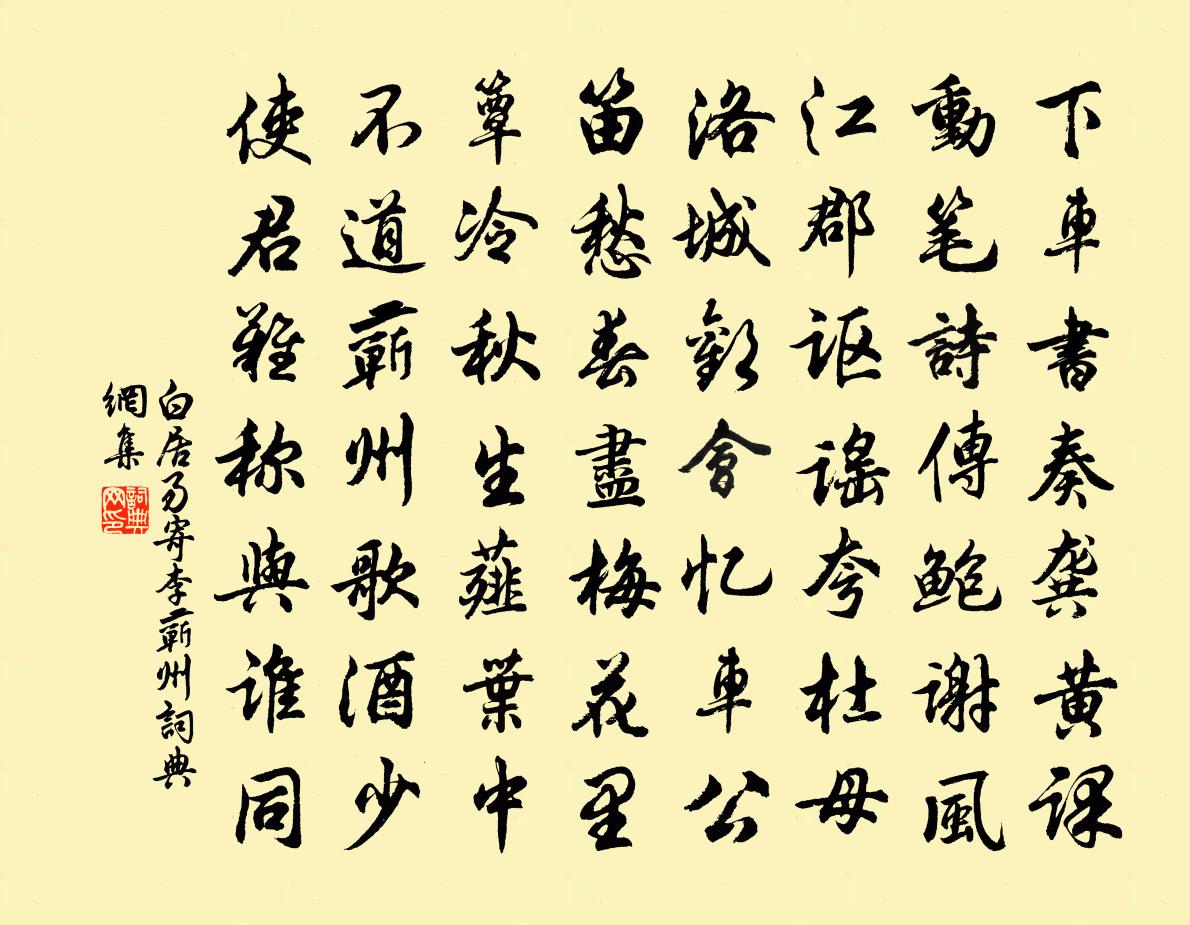 下車書奏龔黄課
動笔詩傳鮑謝風
江郡讴謠夸杜母
洛城歡會忆車公
笛愁春盡梅花里
簟冷秋生薤葉中
不道蘄州歌酒少
使君難称與誰同
白居易寄李蘄州詞典
網集
詞典网印